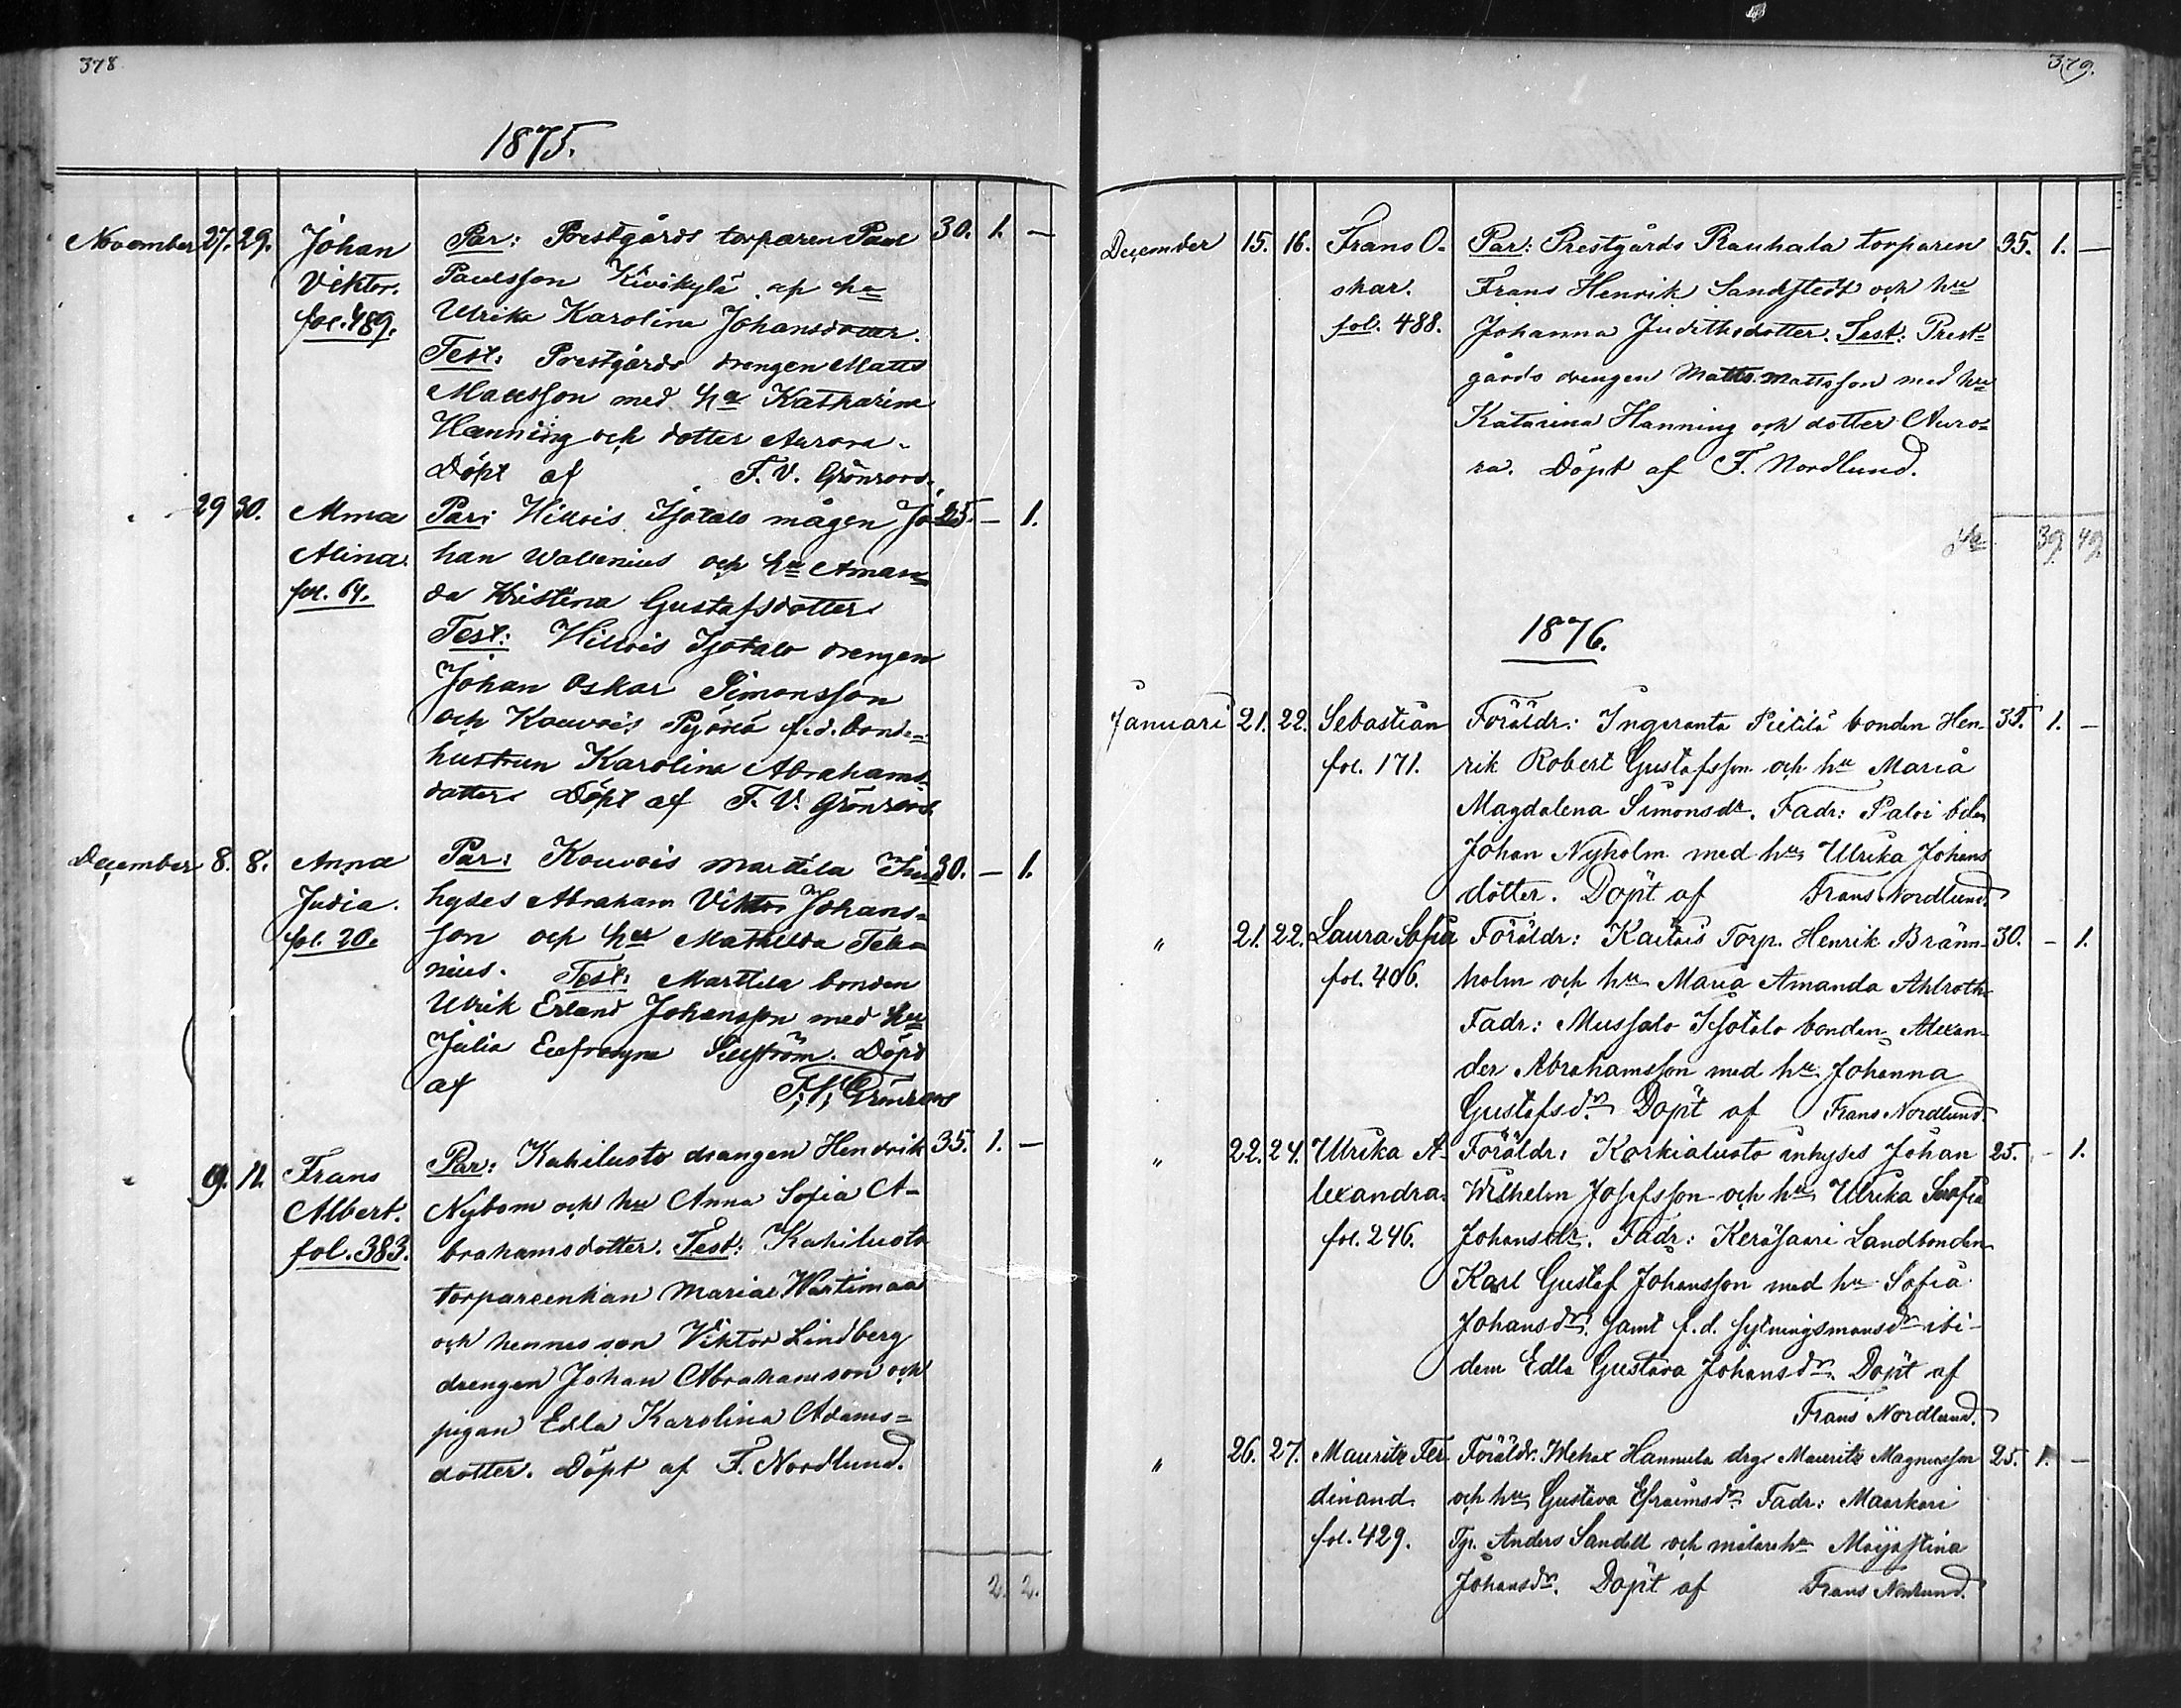 378
1875.
November 27. 29. Johan Par: Prestgårds torparen Paul 30. 1. —
Viktor. Paulsson Kivikylä och hu
fol. 489. Ulrika Karolina Johansdotter.
Test: Prestgårds drengen Matts
Mattsson med hu Katharina
Hanning och dotter Aurora.
Döpt af F. V. Grönroos.
" 29 30. Alma Par: Hillois Isotalo mågen Jo- 25. — 1.
Alina. han Wallenius och hu Aman=
fol. 64. da Kristina Gustafsdotter
Test: Hillois Isotalo drengen
Johan Oskar Simonsson
och Kouvois f.d. bonde=
hustrun Karolina Abrahams=
dotter. Döpt af F. V. Grönroos.
December 8. 8. Anna Par: Kouvois Marttila In- 30. — 1.
Judia. hyses Abraham Viktor Johans=
fol. 20. son och hu Mathilda Tele-
nius. Test: Marttila bonden
Ulrik Erland Johansson med hu
Julia Eufrosyne Sillström. Döpt
af F. V. Grönroos
" 9. 12. Frans Par: Kahiluoto drangen Hendrik 35. 1. —
Albert. Nybom och hu Anna Sofia A-
fol. 383. brahamsdotter. Test: Kahiluoto
torpareenkan Maria Wartimaa
och hennes son Viktor Lindberg
drengen Johan Abrahamson och
pigan Edla Karolina Adams=
dotter. Döpt af F. Nordlund.
2. 2.
379.
December 15. 16. Frans O- Par: Prestgårds Rauhala torparen 35. 1. —
skar. Frans Henrik Sandstedt och hu
fol. 488. Johanna Judithsdotter. Test: Prest=
gårds drengen Matts Mattsson med hu
Katarina Hanning och dotter Auro=
ra. Döpt af F. Nordlund.
39. 49.
1876.
Januari 21. 22. Sebastian Föräldr: Ingeranta Pietilä bonden Hen- 35. 1. —
fol. 171. rik Robert Gustafsson och hu Maria
Magdalena Simonsdr. Fadr: Paloi bdn
Johan Nyholm med hu Ulrika Johans
dotter. Döpt af Frans Nordlund.
" 21. 22. Laura Sofia Föräldr: Kaitois Torp. Henrik Bränn- 30. — 1.
fol. 406. holm och hu Maria Amanda Ahlroth.
Fadr: Mussalo Isotalo bonden Alexan-
der Abrahamsson med hu Johanna
Gustafsdr. Döpt af Frans Nordlund.
" 22. 24. Ulrika A- Föräldr: Korkialuoto inhyses Johan 25. — 1.
lexandra. Wilhelm Josefsson och hu Ulrika Serafia
fol. 246. Johansdr. Fadr: Keräsaari Landbonden
Karl Gustaf Johansson med hu Sofia
Johansdr. samt f.d. sytningsmansdr ibi-
dem Edla Gustava Johansdr. Döpt af
Frans Nordlund.
" 26. 27. Mauritz Fer- Föräldr. Hannula drgn Mauritz Magnusson 25. 1. —
dinand och hu Gustava Efraimsdr. Fadr: Maarkari
fol. 429. Tp. Anders Sandell och målarehu Majastina
Johansdr. Döpt af Frans Nordlund.